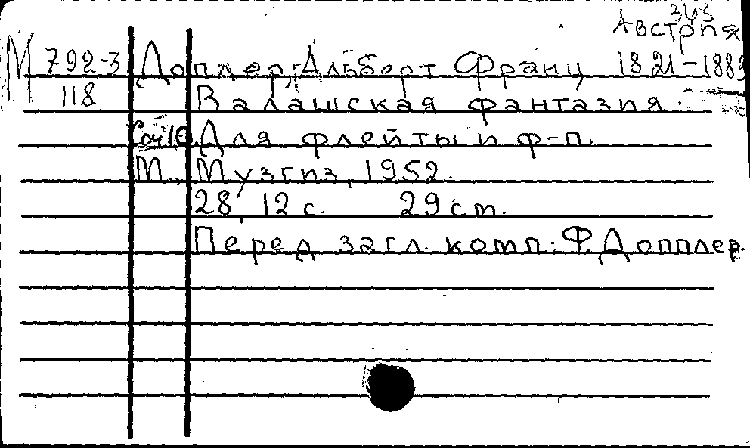 Австрия
М 792-3 Допплер, Альберт Франц 1821-1883
118 Валашская фантазия.
Соч 10 Для флейты и ф-п.
М., Музгиз, 1952.
28, 12 с. 29 cm.
Перед загл. комп: Ф. Допплер